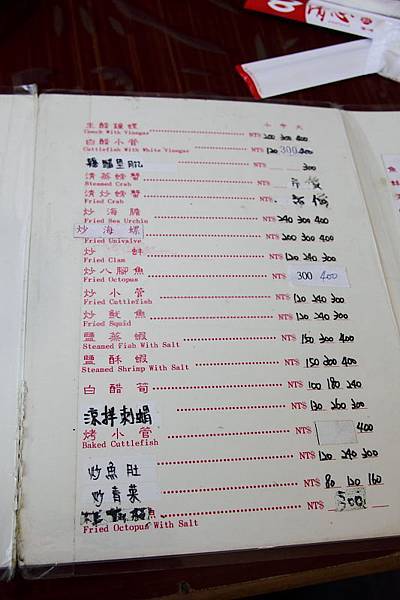 內心
小 中 大
生醋鐘螺 NT$ 200 300 400
Conch With Vinegar
白醋小管 NT$ 120 300 400
Cuttlefish With White Vinegar
NT$ 300
清蒸螃蟹 NT$ 時價
Steamed Crab
清炒螃蟹 NT$ 時價
Fried Crab
炒海膽 NT$ 240 300 400
Fried Sea Urchin
炒海螺 NT$ 200 300 400
Fried Univalve
炒蚌 NT$ 120 240 300
Fried Clam
炒八腳魚 NT$ 300 400
Fried Octopus
炒小管 NT$ 120 240 300
Fried Cuttlefish
炒魷魚 NT$ 120 240 300
Fried Squid
鹽蒸蝦 NT$ 150 300 400
Steamed Fish With Salt
鹽酥蝦 NT$ 150 300 400
Steamed Shrimp With Salt
白醋筍 NT$ 100 180 240
涼拌刺蝟 NT$ 130 260 300
烤小管 NT$ 400
Baked Cuttlefish
炒魚肚 NT$ 120 240 300
炒青菜 NT$ 80 120 160
魚 NT$ 500
Fried Octopus With Salt
魚